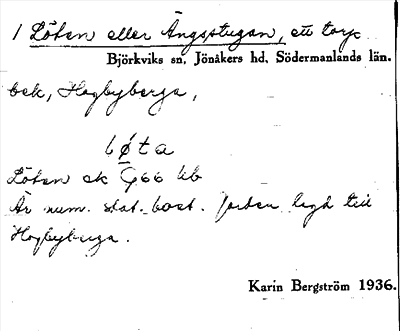 1 Löten eller Ängsstugan, ett torp
Björkviks sn, Jönåkers hd, Södermanlands län.
bek, Hogbyberga,
løta
Löten ek G66 hb
Är num. stat. bost. Jorden lagd till
Hogbyberga.
Karin Bergström 1936.